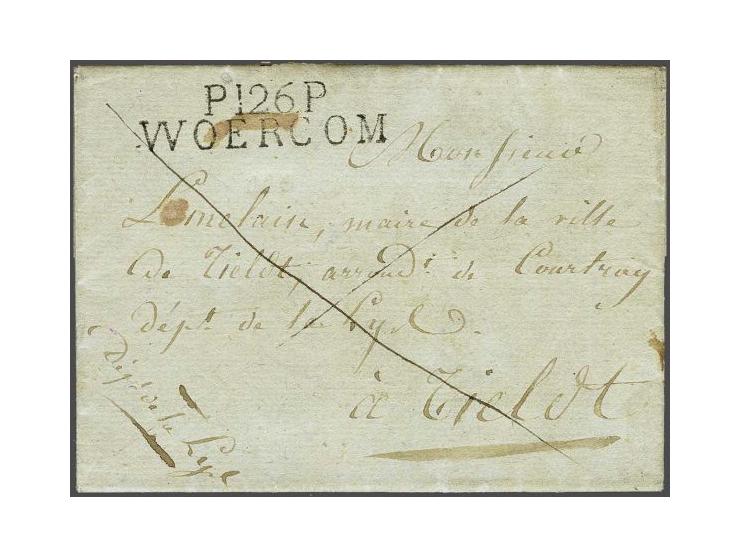 P126P
WOERCOM
Monsieur
Lomelain, maire de la ville
de Tieldt, arrond.t de Courtray
dépt. de la Lys
à Tieldt
dépt. de la Lys